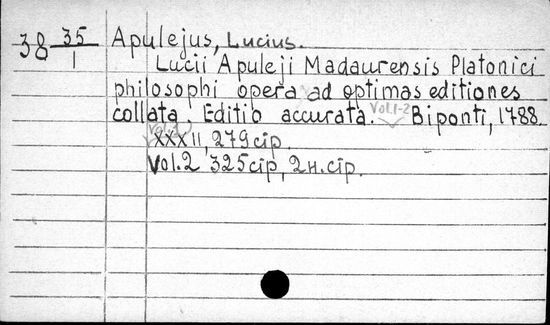 38 35/1 Apulejus, Lucius.
Lucii Apuleji Madaurensis Platonici
philosophi opera ad optimas editiones
collata. Editio accurata. Vol.1-2 Biponti, 1788.
Vol.1
XXXII, 279 cіp.
Vol.2 325 cіp, 2 н. cіp.